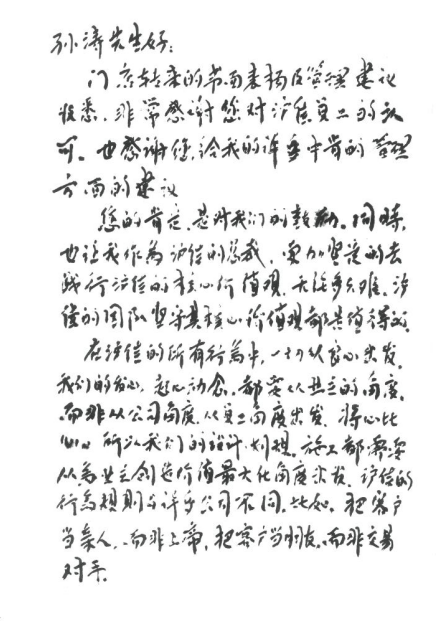 孙涛先生好:
门店转来的书面表扬及管理建议
收悉。非常感谢您对沪佳员工的认
可。也感谢您给我的许多中肯的管理
方面的建议
您的肯定,是对我们的鼓励。同时,
也让我作为沪佳的总裁,更加坚定的去
践行沪佳的核心价值观,无论多久难。沪
佳的团队坚守其核心价值观都是值得的。
在沪佳的所有行为中,一切从良心出发。
我们的发心,起心动念,都要从业主的角度,
而非从公司角度,从员工角度出发,将心比
心。所以我们的设计、规划、施工都需要
从为业主创造价值最大化角度出发。沪佳的
行为规则与许多公司不同。比如,把客户
当亲人,而非上帝,把客户当朋友,而非交易
对手。